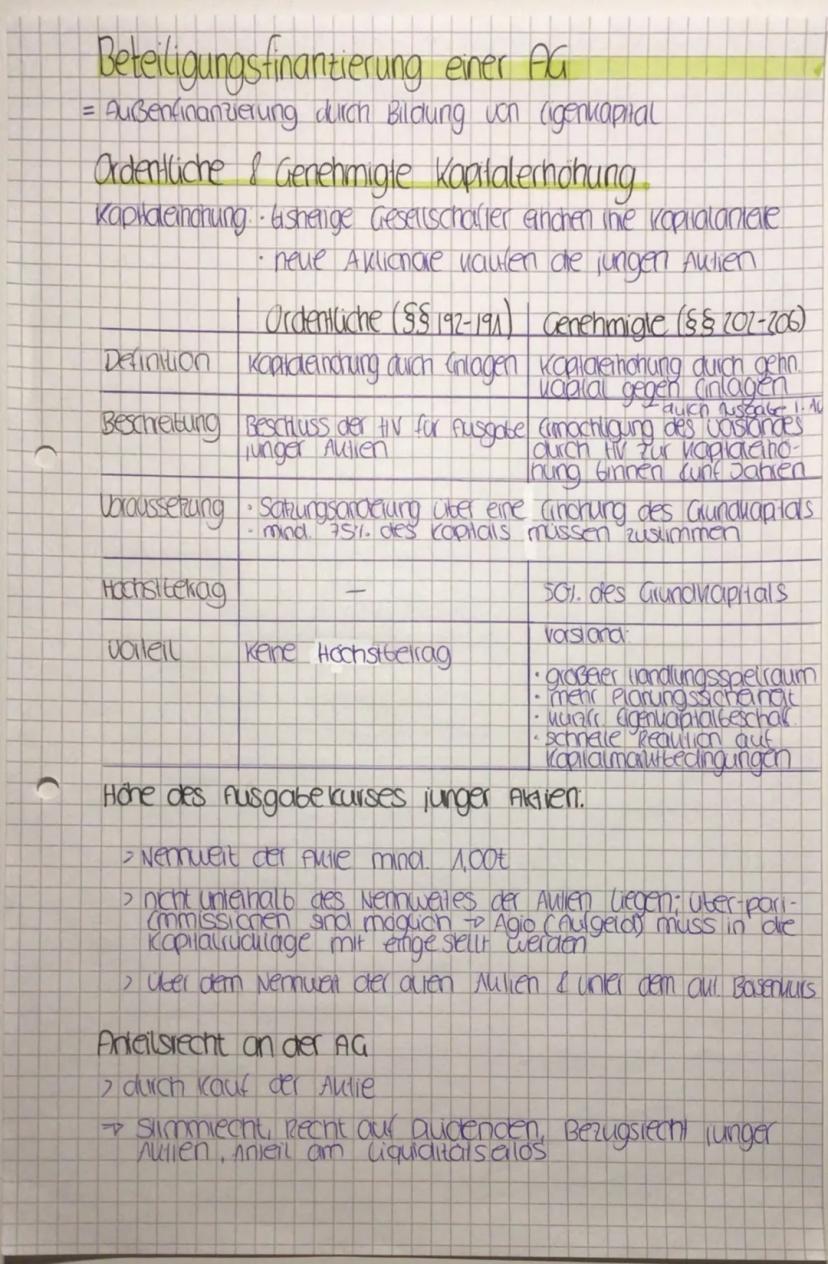 Beteiligungsfinanzierung einer AG
= Außenfinanzierung durch Bildung von Eigenkapital
Ordentliche & Genehmigte Kapitalerhöhung
Kapitalerhöhung: · bisherige Gesellschafter erhöhen ihre Kapitalanteile
· neue Aktionäre kaufen die jungen Aktien
Ordentliche (§§ 192-191) Genehmigte (§§ 202-206)
Definition Kapitalerhöhung durch Einlagen Kapitalerhöhung durch gehn.
Kapital gegen Einlagen
↳ durch Ausgabe j. Ak
Beschreibung Beschluss der HV für Ausgabe Ermächtigung des Vorstandes
junger Aktien durch HV zur Kapitalerhö-
hung binnen fünf Jahren
Voraussetzung · Satzungsänderung über eine Erhöhung des Grundkapitals
· mind. 75% des Kapitals müssen zustimmen
Höchstbetrag — 50% des Grundkapitals
Vorteil Keine Höchstbetrag Vorstand:
· größerer Handlungsspielraum
· mehr Planungssicherheit
· kurzfr. Eigenkapitalbeschaf
· schnelle Reaktion auf
Kapitalmarktbedingungen
Höhe des Ausgabekurses junger Aktien:
> Nennwert der Aktie mind. 1,00€
> nicht unterhalb des Nennwertes der Aktien liegen; über-pari-
Emmissionen sind möglich → Agio (Aufgeld) muss in die
Kapitalrücklage mit eingestellt werden
> über dem Nennwert der alten Aktien & unter dem akt. Börsenkurs
Anteilsrecht an der AG
> durch Kauf der Aktie
→ Stimmrecht, Recht auf Dividenden, Bezugsrecht junger
Aktien, Anteil am Liquiditätserlös